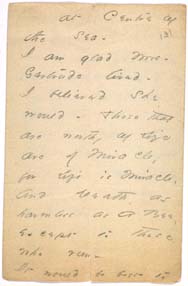 at Centre of
the Sea -
I am glad Mrs -
Gertrude lived -
I believed She
would - Those that
are worthy of Life
are of Miracle,
for Life is Miracle,
and Death, as
harmless as a Bee,
except to those
who run -
It would be best to